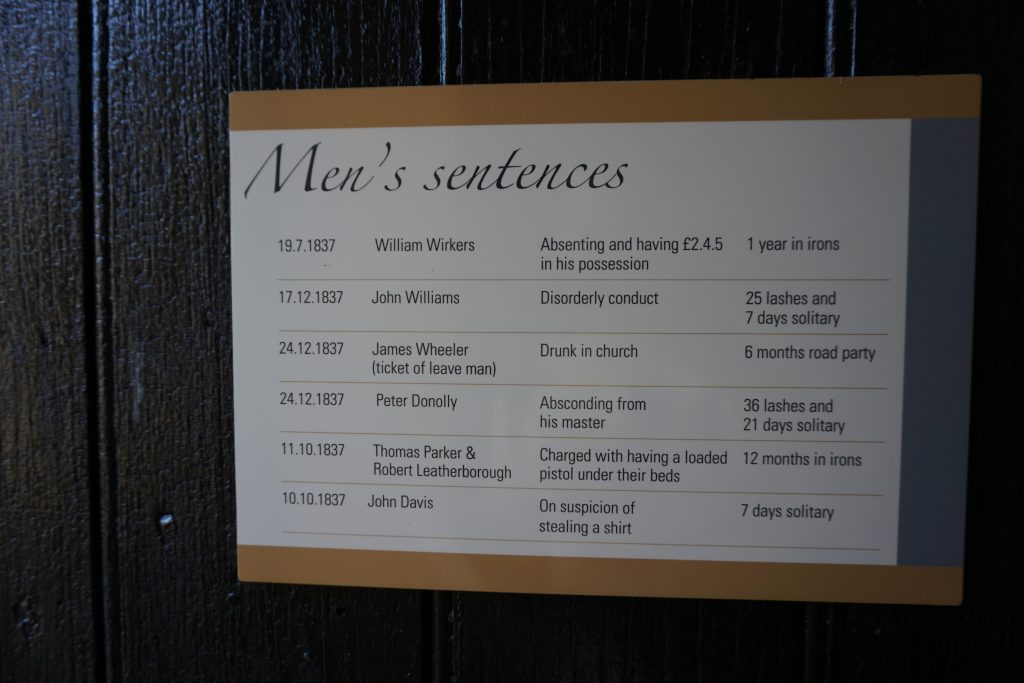 Men's sentences
19.7.1837 William Wirkers Absenting and having £2.4.5 1 year in irons
in his possession
17.12.1837 John Williams Disorderly conduct 25 lashes and
7 days solitary
24.12.1837 James Wheeler Drunk in church 6 months road party
(ticket of leave man)
24.12.1837 Peter Donolly Absconding from 36 lashes and
his master 21 days solitary
11.10.1837 Thomas Parker & Charged with having a loaded 12 months in irons
Robert Leatherborough pistol under their beds
10.10.1837 John Davis On suspicion of 7 days solitary
stealing a shirt